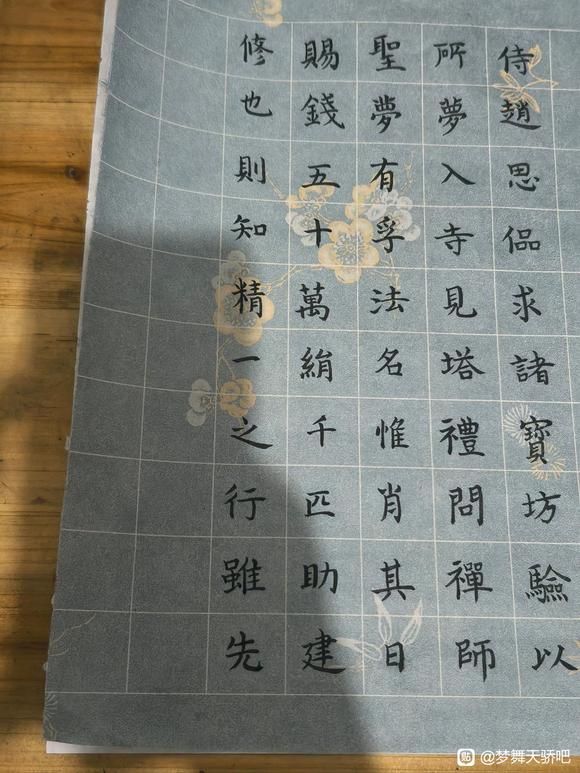 侍趙思偘求諸寶坊驗以
所夢入寺見塔禮問禪師
聖夢有孚法名惟肖其日
賜錢五十萬絹千匹助建
修也則知精一之行雖先
貼 @梦舞天骄吧